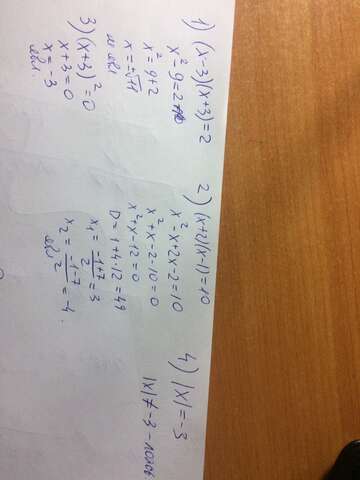 1) (x-3)(x+3)=2
x²-9=2
x²=9+2
x=±√11
2) (x+2)(x-1)=10
x²-x+2x-2=10
x²+x-2-10=0
x²+x-12=0
D=1+4·12=49
x₁=(-1+7)/2=3
x₂=(-1-7)/2=-4.
3) (x+3)²=0
x+3=0
x=-3
4) |x|=-3
|x|≠-3